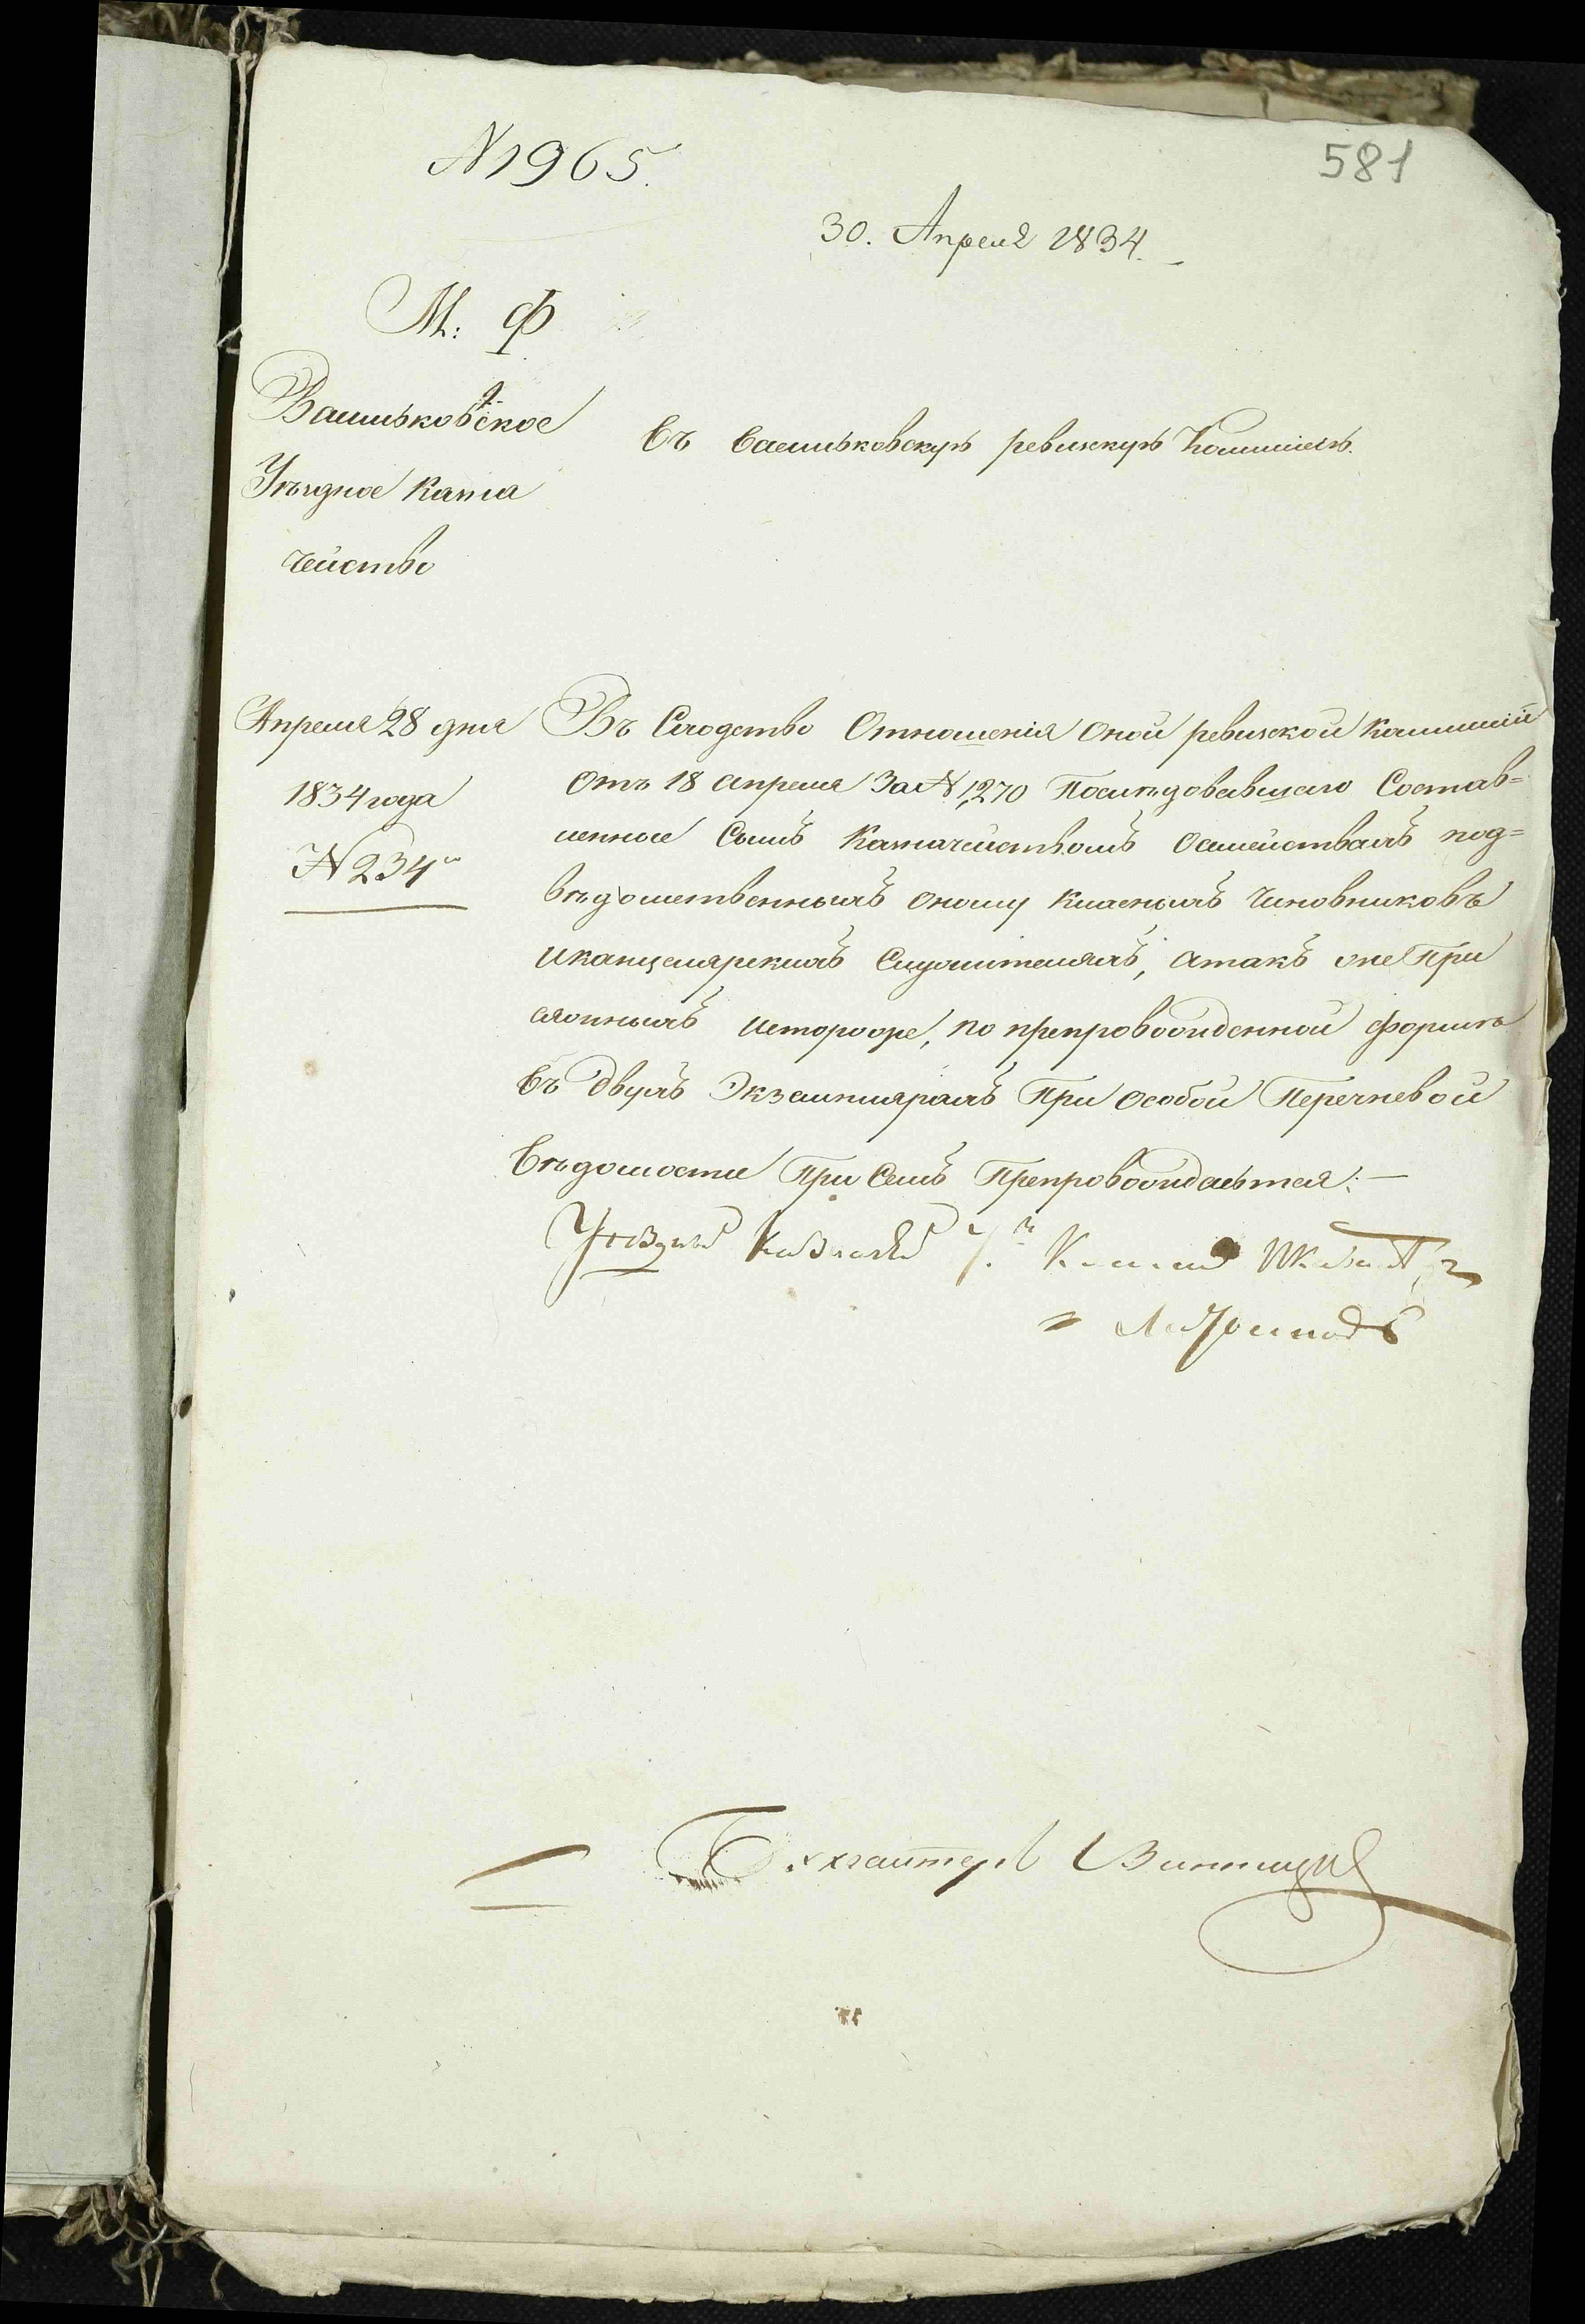 № 1965.
581
30. Апреля 1834.
М: Ф
Васильковское
Уѣздное Казна
чейство
Въ Васильковскую ревизкую Коммисію.
Апреля 28 дня
1834 года
№ 234
Въ Слѣдство Отношенія оной ревизской коммиссій
отъ 18 апреля За № 1270 Послѣдовавшаго Состав=
ленные Симъ Казначействомъ Осемействахъ под=
вѣдомственныхъ оному класныхъ Чиновниковъ
иканцелярскихъ Служителяхъ, атакъ же При
сяжныхъ исторожѣ, по препровожденной формѣ
въ двухъ Экземплярахъ При особой Перечневой
вѣдомости При Семъ Препровождаются:—
Уѣздный Казначей
Бухгалтеръ